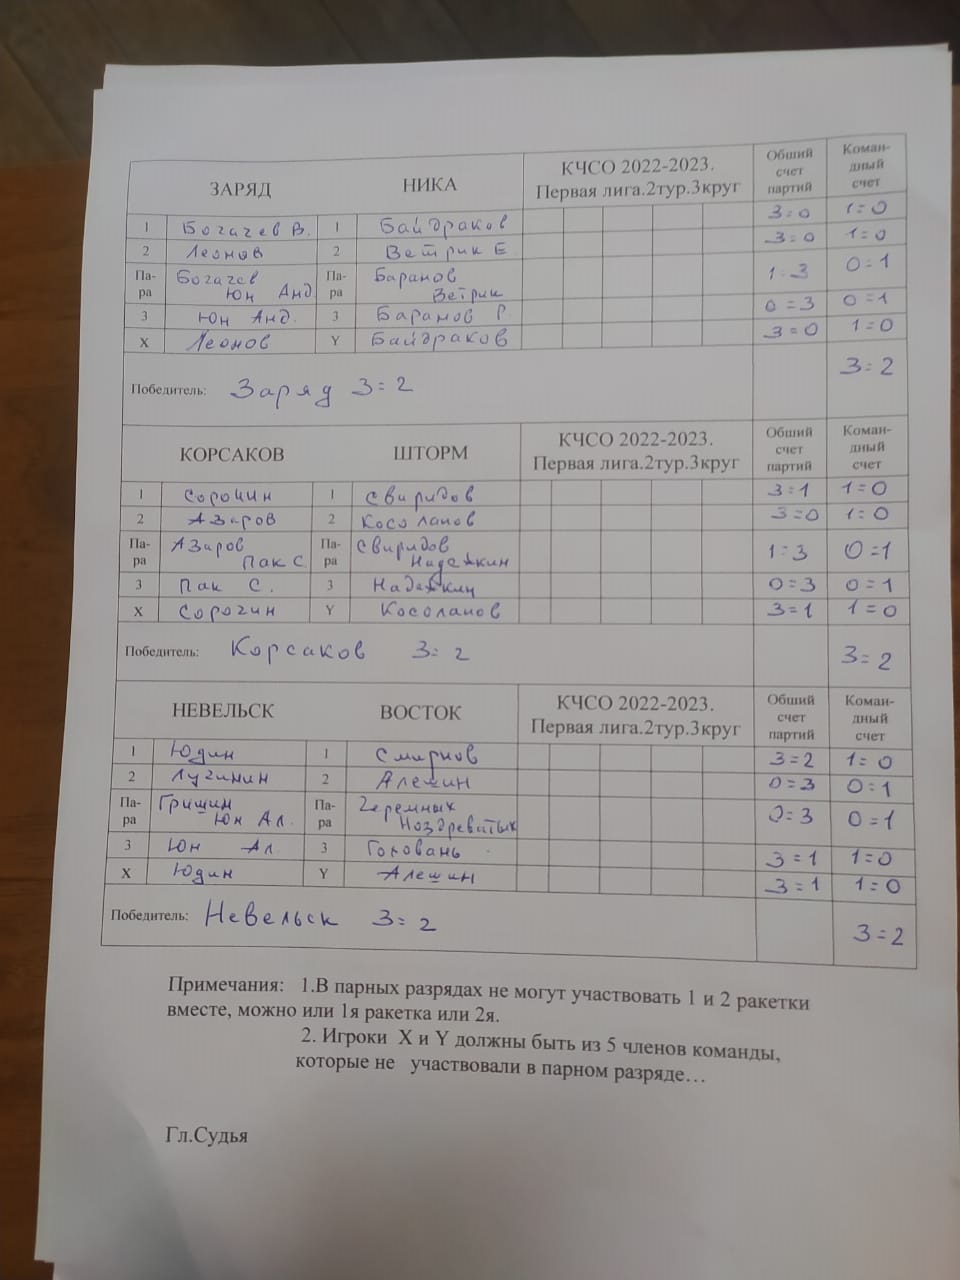 ЗАРЯД НИКА КЧСО 2022-2023. Первая лига.2тур.3круг Общий счет партий Коман-дный счет
1 Богачев В. 1 Байдраков 3=0 1=0
2 Леонов 2 Ветрик Е 3=0 1=0
Па-ра Богачев Юн Анд Па-ра Баранов Ветрик 1=3 0=1
3 Юн Анд. 3 Баранов Р 0=3 0=1
X Леонов Y Байдраков 3=0 1=0
Победитель: Заряд 3=2 3=2
КОРСАКОВ ШТОРМ КЧСО 2022-2023. Первая лига.2тур.3круг Общий счет партий Коман-дный счет
1 Сорочин 1 Свиридов 3=1 1=0
2 Азаров 2 Косолапов 3=0 1=0
Па-ра Азаров Пак С Па-ра Свиридов Надежкин 1=3 0=1
3 Пак С. 3 Надежкин 0=3 0=1
X Сорочин Y Косолапов 3=1 1=0
Победитель: Корсаков 3=2 3=2
НЕВЕЛЬСК ВОСТОК КЧСО 2022-2023. Первая лига.2тур.3круг Общий счет партий Коман-дный счет
1 Юдин 1 Смирнов 3=2 1=0
2 Лугинин 2 Алешин 0=3 0=1
Па-ра Гришин Юн Ал. Па-ра Черемных Ноздреватых 0=3 0=1
3 Юн Ал. 3 Головань 3=1 1=0
X Юдин Y Алешин 3=1 1=0
Победитель: Невельск 3=2 3=2
Примечания: 1.В парных разрядах не могут участвовать 1 и 2 ракетки
вместе, можно или 1я ракетка или 2я.
2. Игроки X и Y должны быть из 5 членов команды,
которые не участвовали в парном разряде…
Гл.Судья